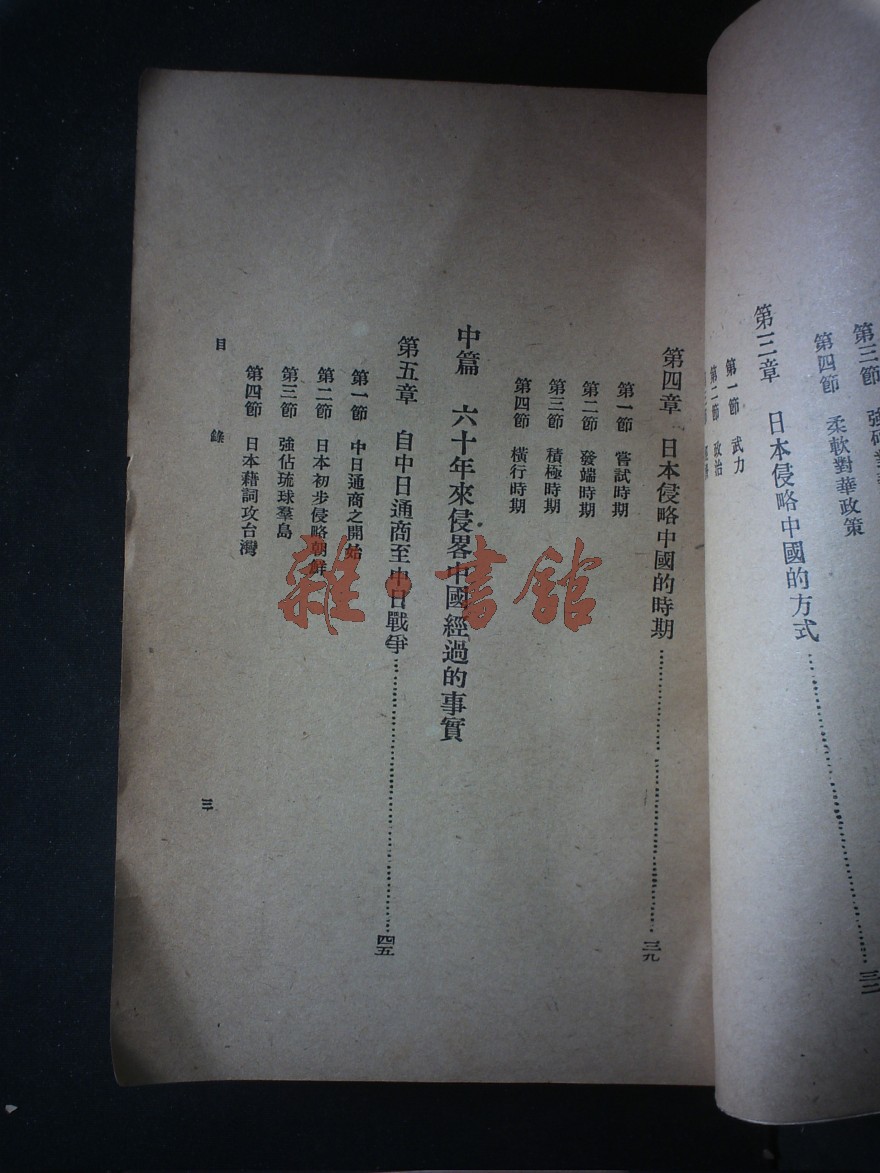 第三節
第四節 柔軟對華政策
第三章 日本侵略中國的方式……三三
第一節 武力
第二節 政治
第四章 日本侵略中國的時期……三九
第一節 嘗試時期
第二節 發端時期
第三節 積極時期
第四節 橫行時期
中篇 六十年來侵畧中國經過的事實
第五章 自中日通商至中日戰爭……四五
第一節 中日通商之開始
第二節 日本初步侵略朝鮮
第三節 強佔琉球羣島
第四節 日本藉詞攻台灣
目錄 三
雜·書館